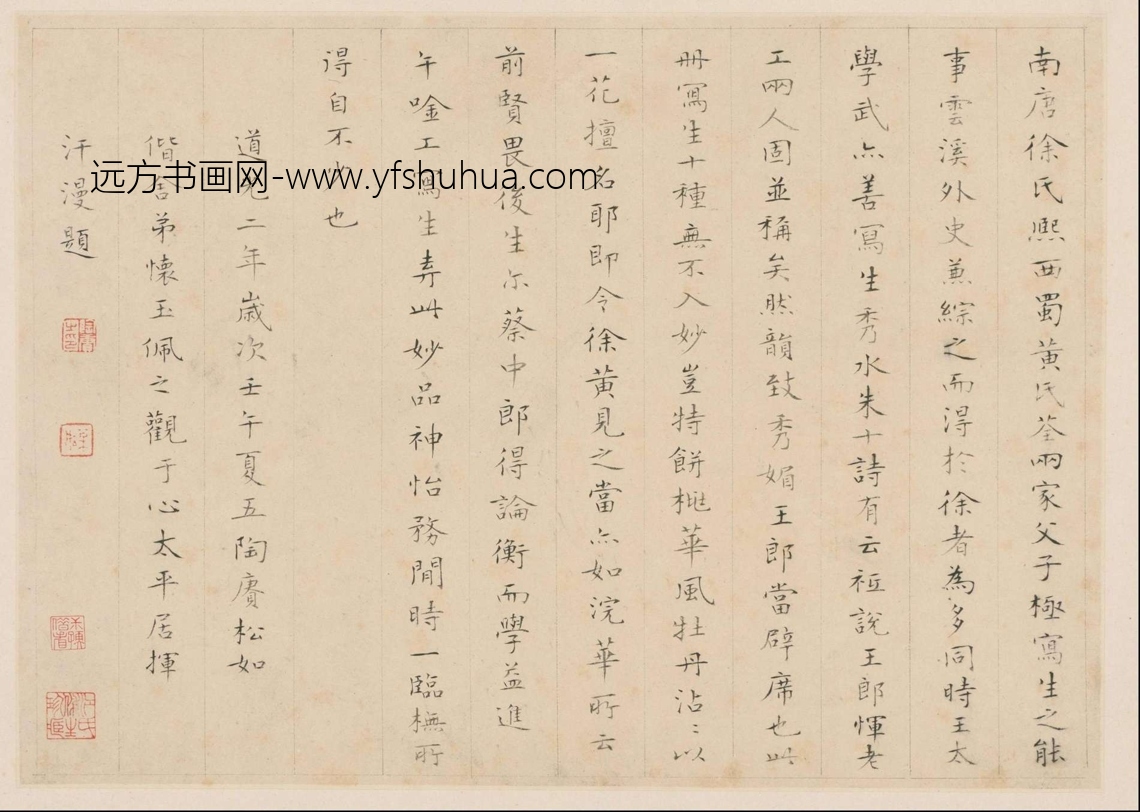 南唐徐氏熙西蜀黃氏荃兩家父子極寫生之能
事雲溪外史兼綜之而得於徐者為多同時王太
學武亦善寫生秀水朱十詩有云祗說王郎惲老
工兩人固並稱矣然韻致秀媚王郎當辟席也此
冊寫生十種無不入妙豈特餅桃華風牡丹沾〻以
一花擅名耶即令徐黃見之當亦如浣華所云
前賢畏後生尔蔡中郎得論衡而學益進
午唫工寫生弆此妙品神怡務閒時一臨橅所
得自不少也
道光二年歲次壬午夏五陶賡松如
偕舍弟懷玉佩之觀于心太平居揮
汗漫題
远方书画网-www.yfshuhua.com